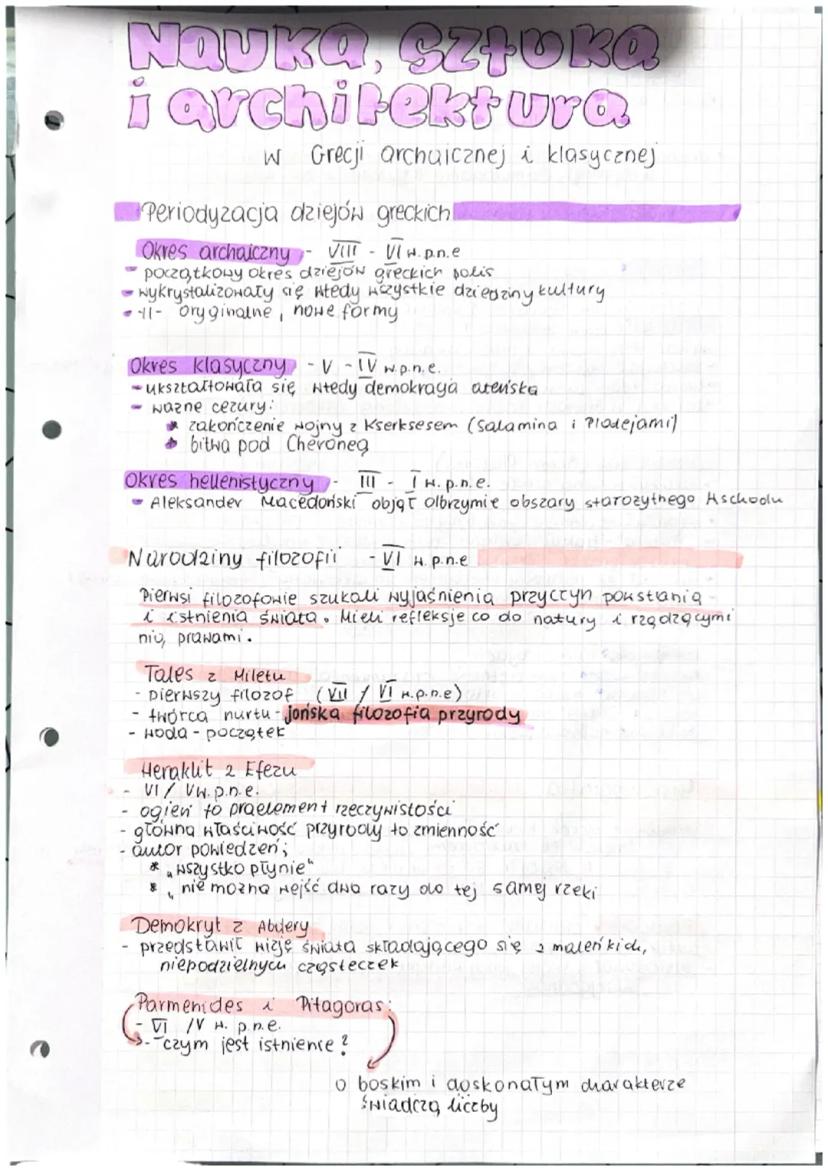 Nauka, sztuka
i architektura
w Grecji archaicznej i klasycznej
Periodyzacja dziejów greckich
Okres archaiczny - VIII - VI w. p.n.e
- początkowy okres dziejów greckich polis
- wykrystalizowały się wtedy wszystkie dziedziny kultury
- -II- oryginalne, nowe formy
Okres klasyczny - V - IV w.p.n.e.
- ukształtowała się wtedy demokracja ateńska
- ważne cezury:
* zakończenie wojny z Kserksesem (Salamina i Platejami)
* bitwa pod Cheroneą
Okres hellenistyczny - III - I w. p.n.e.
- Aleksander Macedoński objął olbrzymie obszary starożytnego wschodu
Narodziny filozofii - VI w. p.n.e
Pierwsi filozofowie szukali wyjaśnienia przyczyn powstania
i istnienia świata. Mieli refleksje co do natury i rządzącymi
nią prawami.
Tales z Miletu
- pierwszy filozof (VII / VI w.p.n.e)
- twórca nurtu - jońska filozofia przyrody
- woda - początek
Heraklit z Efezu
- VI / V w. p.n.e.
- ogień to praelement rzeczywistości
- główną właściwość przyrody to zmienność
- autor powiedzeń;
* "wszystko płynie"
* "nie można wejść dwa razy do tej samej rzeki
Demokryt z Abdery
- przedstawił wizję świata składającego się z maleńkich,
niepodzielnych cząsteczek
Parmenides i Pitagoras:
- VI / V w. p.n.e.
- czym jest istnienie?
o boskim i doskonałym charakterze
świadczą liczby